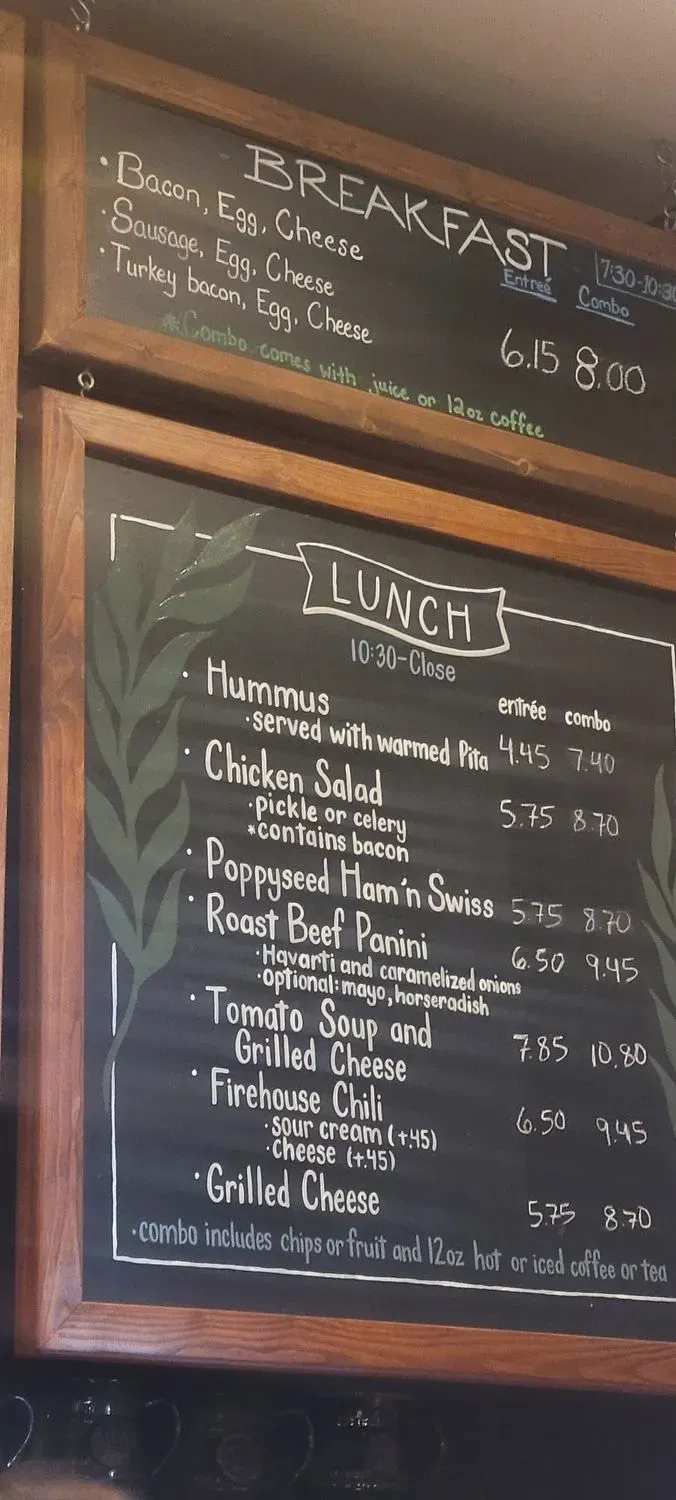 BREAKFAST
7:30-10:30
Entreé Combo
• Bacon, Egg, Cheese
• Sausage, Egg, Cheese
• Turkey bacon, Egg, Cheese
6.15 8.00
*Combo comes with juice or 12oz coffee
LUNCH
10:30-Close
entrée combo
• Hummus
•served with warmed Pita 4.45 7.40
• Chicken Salad 5.75 8.70
•pickle or celery
*contains bacon
• Poppyseed Ham'n Swiss 5.75 8.70
• Roast Beef Panini 6.50 9.45
•Havarti and caramelized onions
•optional: mayo, horseradish
• Tomato Soup and
Grilled Cheese 7.85 10.80
• Firehouse Chili 6.50 9.45
•sour cream (+.45)
•cheese (+.45)
• Grilled Cheese 5.75 8.70
•combo includes chips or fruit and 12oz hot or iced coffee or tea